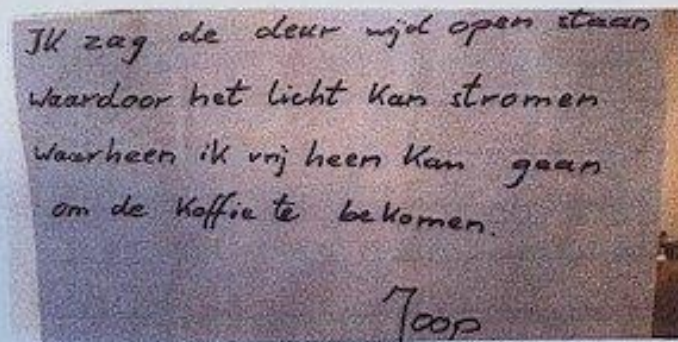 Ik zag de deur wijd open staan
waardoor het licht kan stromen
waarheen ik vrij heen kan gaan
om de koffie te bekomen.
Joop